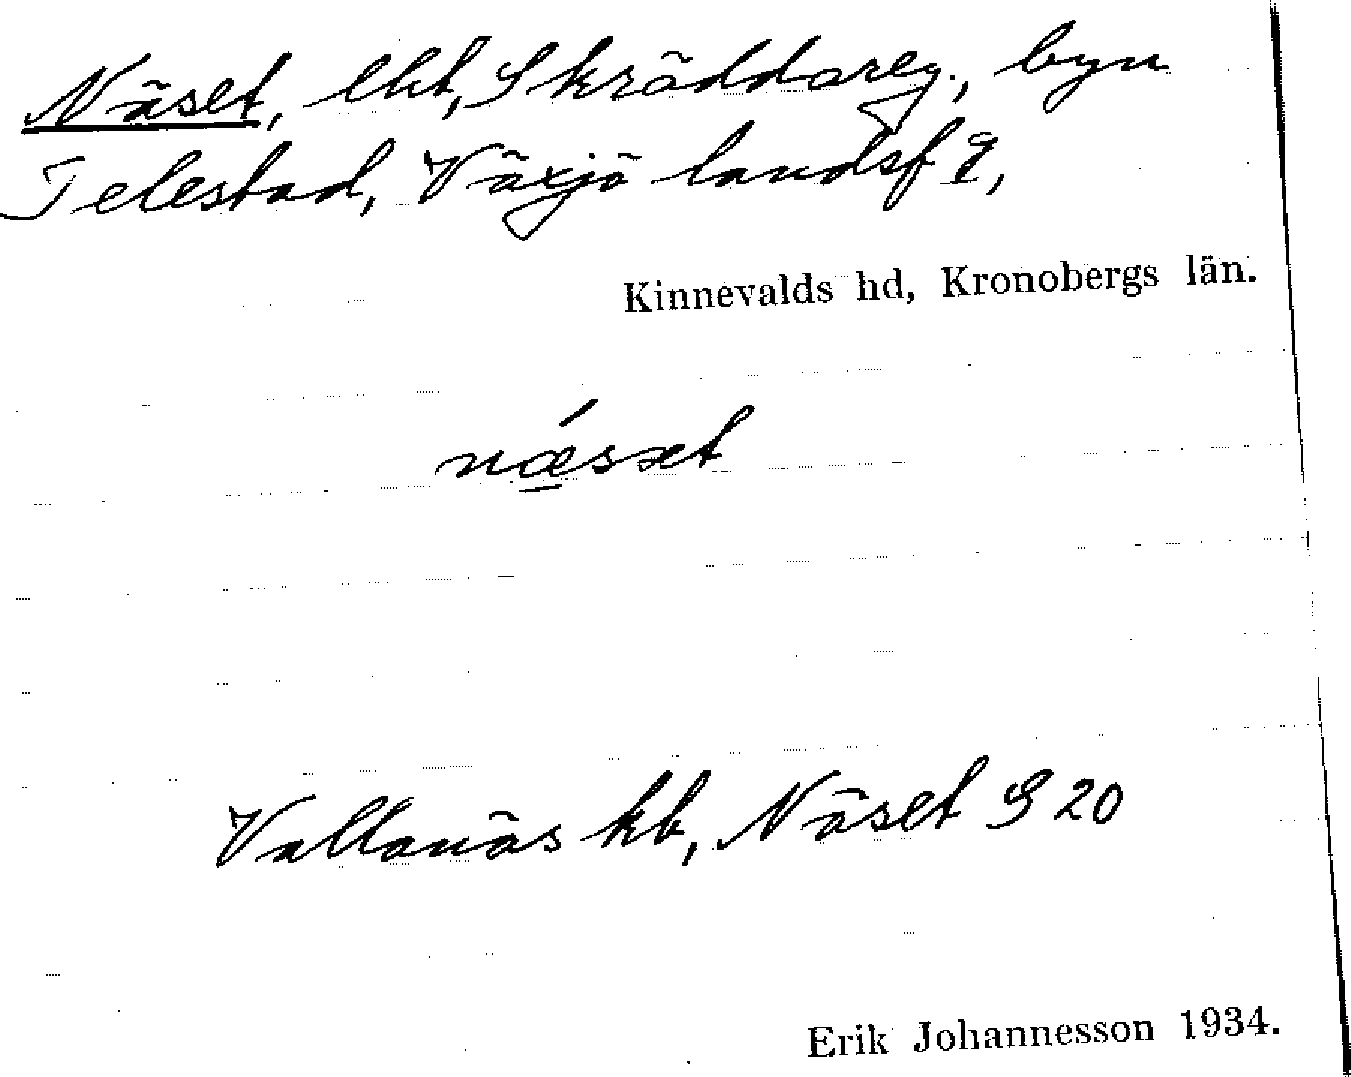 Näset, lht, Skräddareg., byn
Telestad, Växjö landsf q,
Kinnevalds hd, Kronobergs län.
nǽ̲sət
Vallanäs hb, Näset S 20
Erik Johannesson 1934.